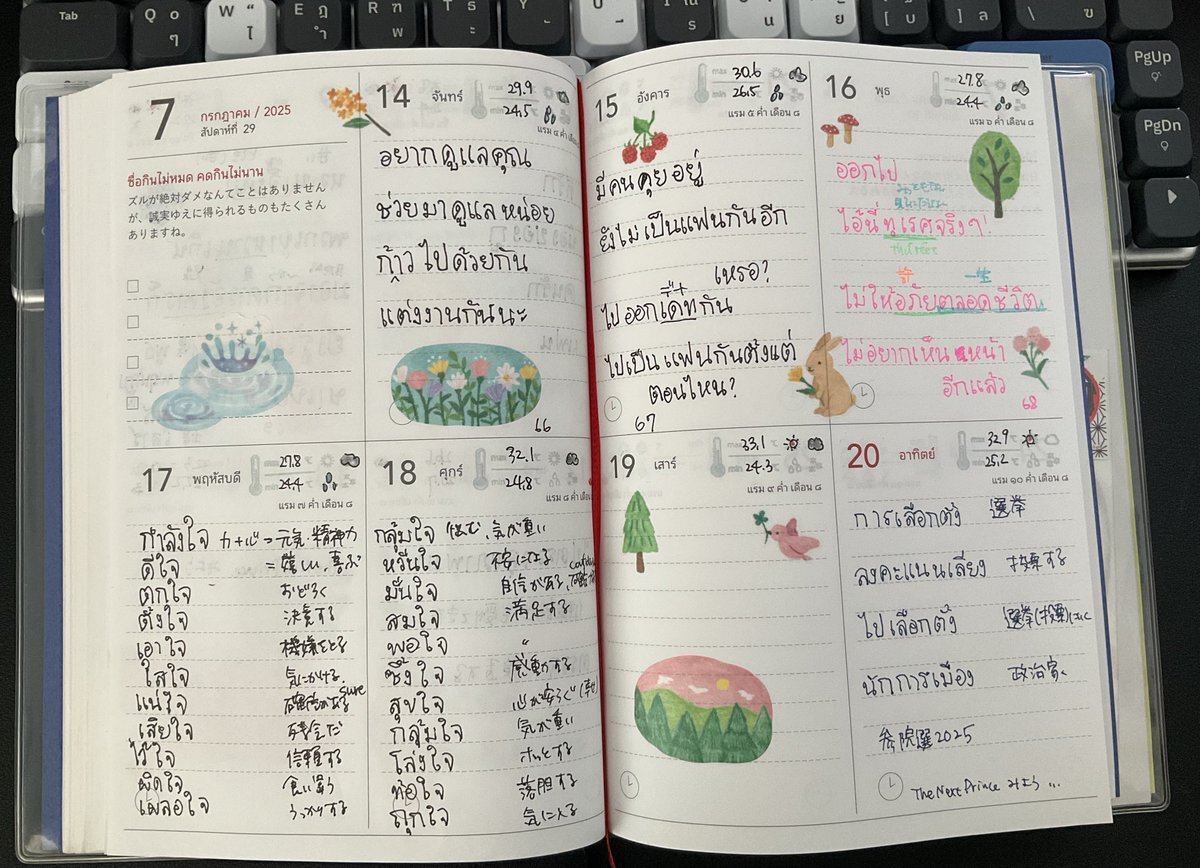 Tab
PgUp
PgDn
7
กรกฎาคม / 2025
สัปดาห์ที่ 29
ซื่อกินไม่หมด คดกินไม่นาน
ズルが絶対ダメなんてことはありません
が、誠実ゆえに得られるものもたくさん
ありますね。
14 จันทร์
max 29.9
min 24.5
แรม ๔ ค่ำ เดือน
อยากดูแลคุณ
ช่วยมาดูแลหน่อย
ก้าวไปด้วยกัน
แต่งงานกันนะ
66
15 อังคาร
max 30.6
min 26.5
แรม ๕ ค่ำ เดือน ๘
มีคนคุยอยู่
ยังไม่เป็นแฟนกันอีก
เหรอ?
ไปออกเดทกัน
ไปเป็นแฟนกันตั้งแต่
ตอนไหน?
67
16 พุธ
max 27.8
min 24.4
แรม ๖ ค่ำ เดือน ๘
ออกไป
ไอ้นี่ทุเรศจริงๆ
ไม่ให้อภัยตลอดชีวิต
一生
ไม่อยากเห็นหน้า
อีกแล้ว
68
17 พฤหัสบดี
27.8
24.4
แรม ๗ ค่ำ เดือน ๘
กำลังใจ カ+心 = 元気・精神力
ดีใจ = 嬉しい、喜ぶ
ตกใจ おどろく
ตั้งใจ 決意する
เอาใจ 機嫌をとる
ใส่ใจ 気にかける
แน่ใจ sure
เสียใจ 残念だ
ไว้ใจ 信頼する
ผิดใจ 食い違う
เผลอใจ うっかりする
18 ศุกร์
32.1
24.8
แรม ๘ ค่ำ เดือน ๘
กลุ้มใจ 気が重い
หวั่นใจ 不安になる
มั่นใจ 自信がある
สมใจ 満足する
พอใจ 〃
ซึ้งใจ 感動する
สุขใจ
กลุ้มใจ 気が重い
โล่งใจ ホッとする
ท้อใจ 落胆する
ถูกใจ 気に入る
19 เสาร์
max 33.1
min 24.3
แรม ๙ ค่ำ เดือน ๘
20 อาทิตย์
32.9
25.2
แรม ๑๐ ค่ำ เดือน ๘
การเลือกตั้ง 選挙
ลงคะแนนเสียง 投票する
ไปเลือกตั้ง 選挙(投票)にいく
นักการเมือง 政治家
参院選2025
The Next Prince みよう...